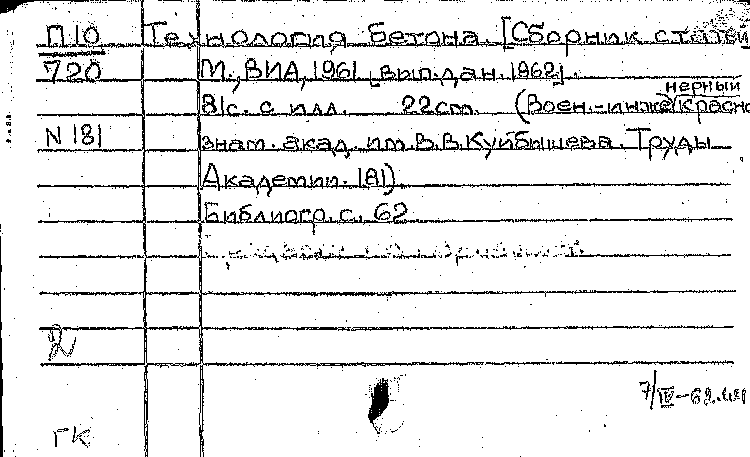 П10 Технология бетона. [Сборник статей
720 М., ВИА, 1961 [вып. дан. 1962].
81с. с илл. 22cm. (Воен.-инженерный Красно
N 181 знам. акад. им. В.В.Куйбышева. Труды
Академии. 181).
Библиогр. с. 62
2
7/IV-62.
ГК